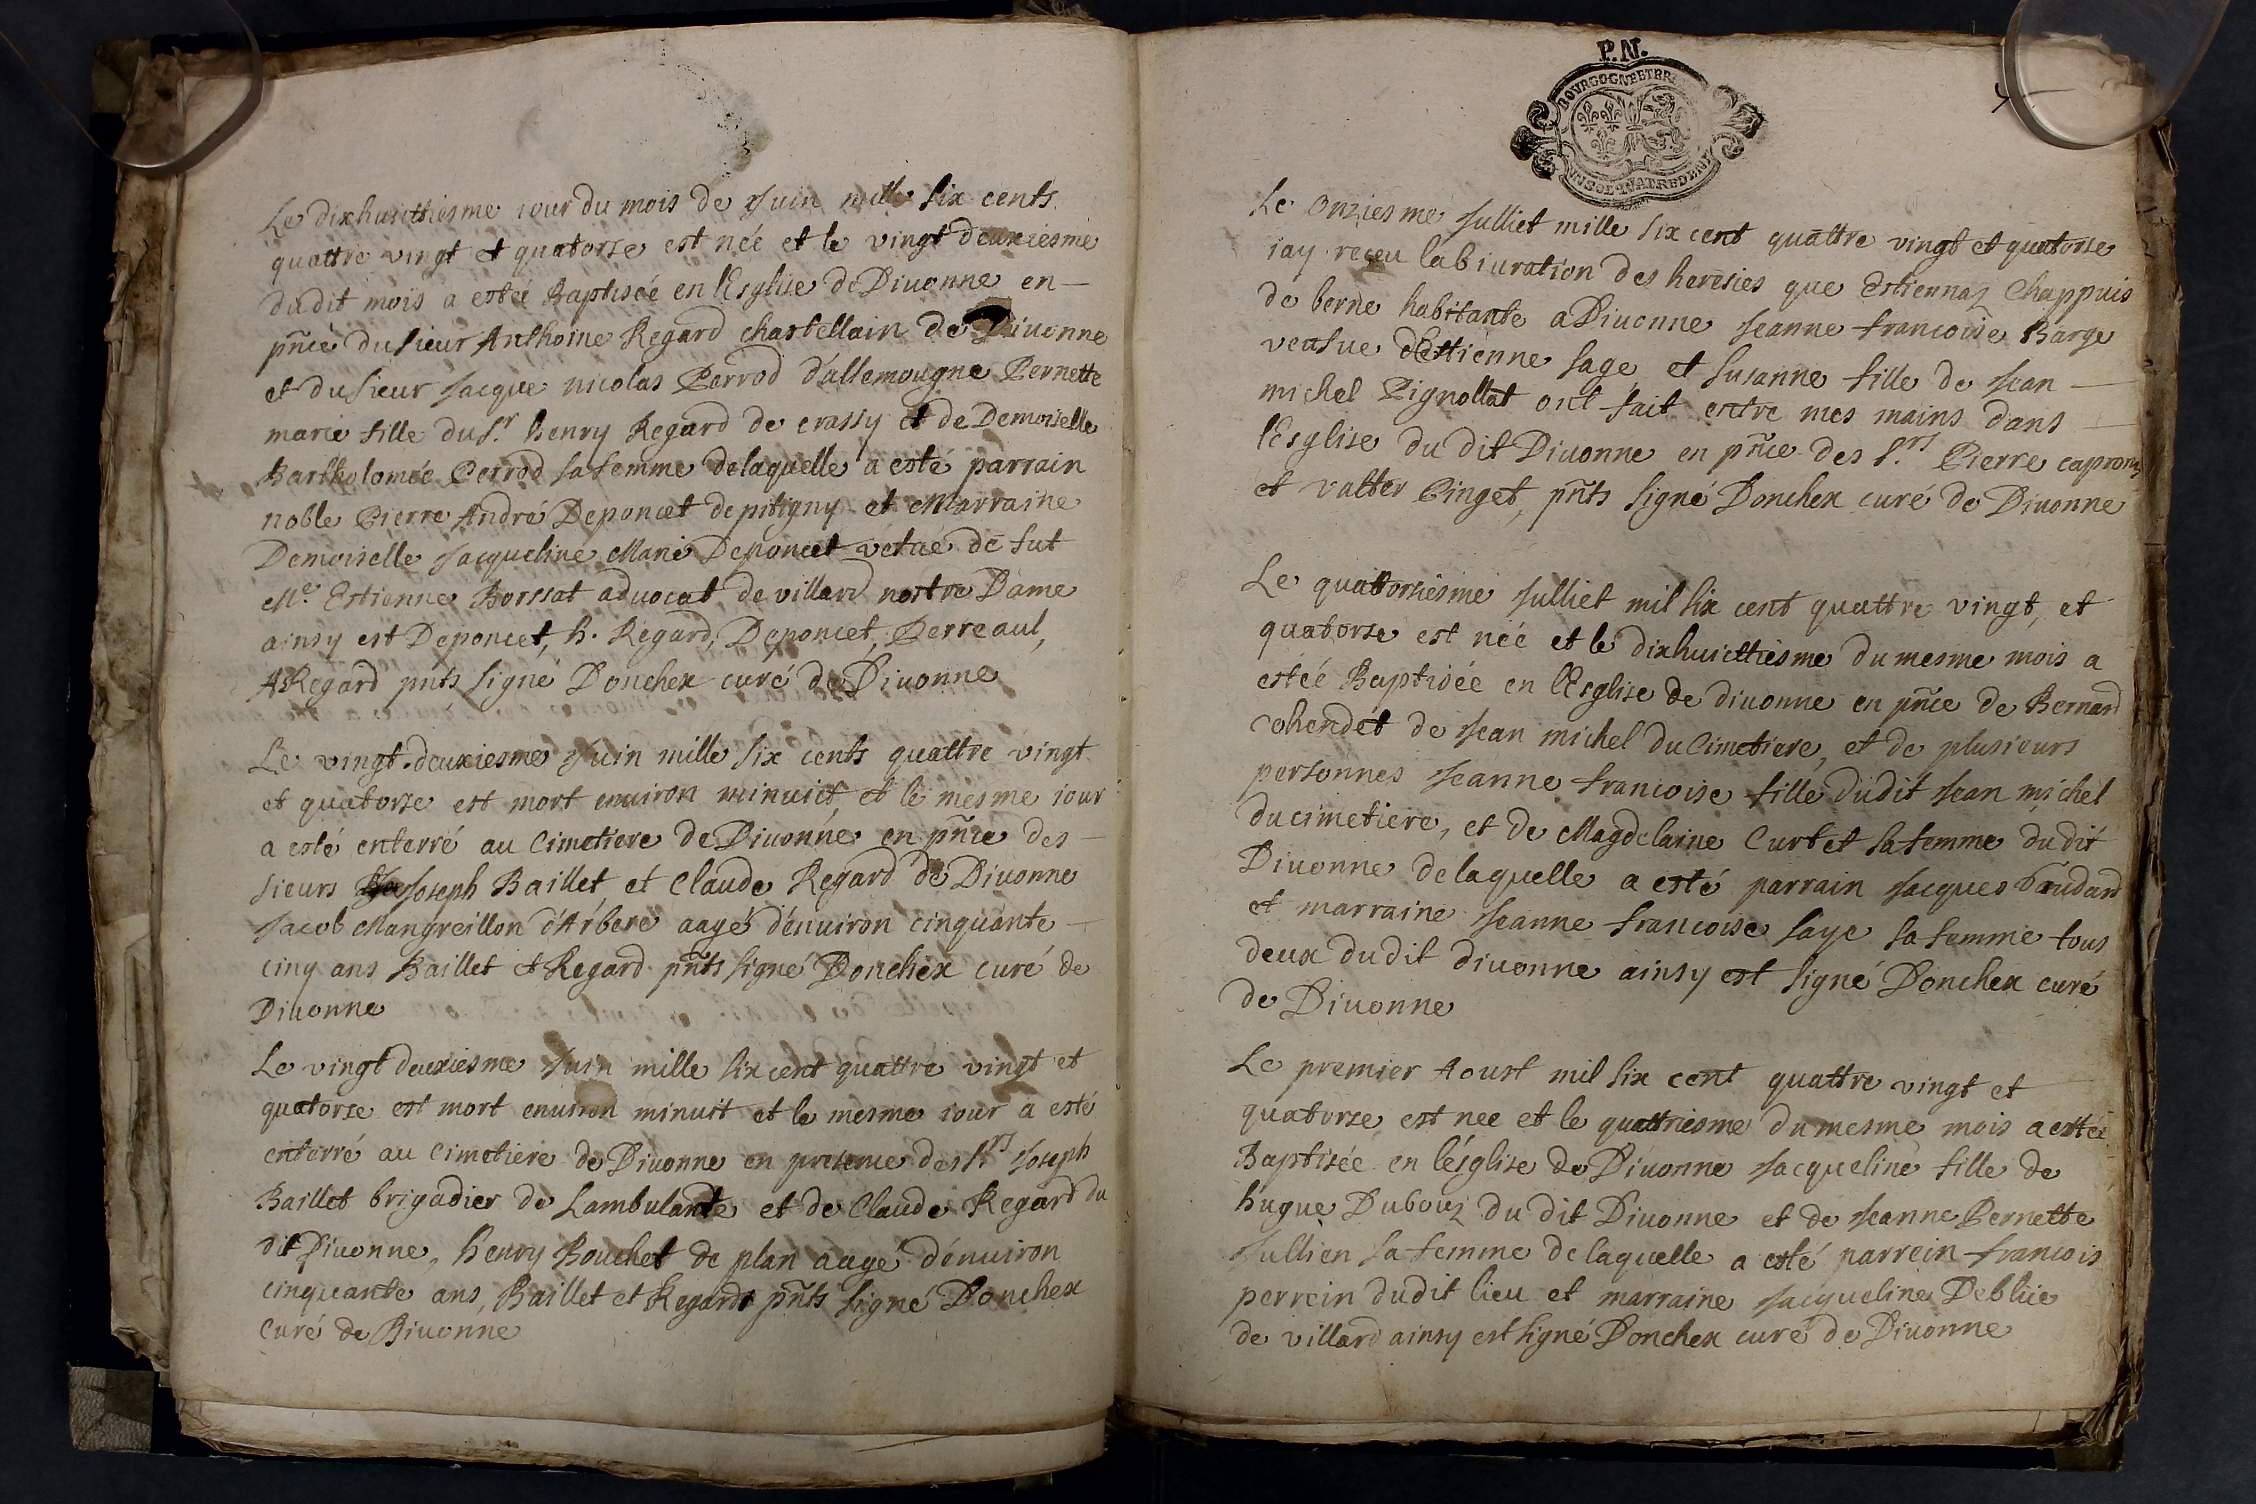 Le dixhuicthiesme iour du mois de Juin mille six cents
quattre vingt et quatorse est née et le vingt deuxiesme
dudit mois a estéé Baptiséé en l'Esglise de Divonne en
pñce du sieur Anthoine Regard chastellain de Divonne
et du sieur Jacque nicolas Perrod d'allemougne Pernette
marie fille du Sr. henry Regard de crassy et de Demoiselle
Bartholomée Perrod sa femme delaquelle a esté parrain
noble Pierre André Deponcet de pitigny et Marraine
Demoiselle Jacqueline Marie Deponcet vefue de fut
Me. Estienne Borssat aduocat de villard nostre Dame
ainsy est Deponcet, h. Regard, Deponcet, Perreaul,
A Regard pñts signé Donchex curé de Divonne
Le vingt deuxiesme Juin mille six cents quattre vingt
et quatorse est mort enuiron minuict et le mesme iour
a esté enterré au Cimetiere de Divonne en pñce des
sieurs Joseph Baillet et Claude Regard de Divonne
Jacob Mangreillon d'Arbere aagé d'enuiron cinquante
cinq ans Baillet et Regard pñts signé Donchex curé de
Divonne
Le vingt deuxiesme Juin mille six cent quattre vingt et
quatorse est mort enuiron minuit et le mesme iour a esté
enterré au Cimetiere de Divonne en presence des Srs Joseph
Baillet brigadier de Lambulante et de Claude Regard du
dit Divonne, henry Bouchet de plan aagé d'enuiron
cinquante ans, Baillet et Regard pñts signé Donchex
Curé de Divonne
P.N.
BOVRGOGNE ET BR
Le Onziesme Julliet mille six cent quattre vingt et quatorse
iay receu labiuration des heresies que Estiennaz Chappuis
de berne habitante a Divonne Jeanne francoise Barge
veufue d'Estienne sage et Susanne fille de Jean
michel Pignollat ont fait entre mes mains dans
l'Esglise du dit Divonne en pñce des Srs Pierre caprony
et valter Pinget, pñts signé Donchex curé de Divonne
Le quattorsiesme Julliet mil six cent quattre vingt, et
quatorse est néé et le dixhuictiesme du mesme mois a
estéé Baptiséé en l'Esglise de divonne en pñce de Bernard
cohendet de Jean michel du Cimetiere, et de plusieurs
personnes Jeanne francoise fille dudit Jean michel
du cimetiere, et de Magdelaine Curtet sa femme du dit
Divonne delaquelle a esté parrain Jacques
et marraine Jeanne francoise saye sa femme tous
deux dudit divonne ainsy est signé Donchex curé
de Divonne
Le premier Aoust mil six cent quattre vingt et
quatorse est nee et le quattriesme du mesme mois a estéé
Baptisée en l'ésglise de Divonne Jacqueline fille de
hugue Dubouz du dit Divonne et de Jeanne Pernette
Jullien sa femme de laquelle a esté parrein francois
perrein dudit lieu et marraine Jacqueline Deblüe
de villard ainsy est signé Donchex curé de Divonne